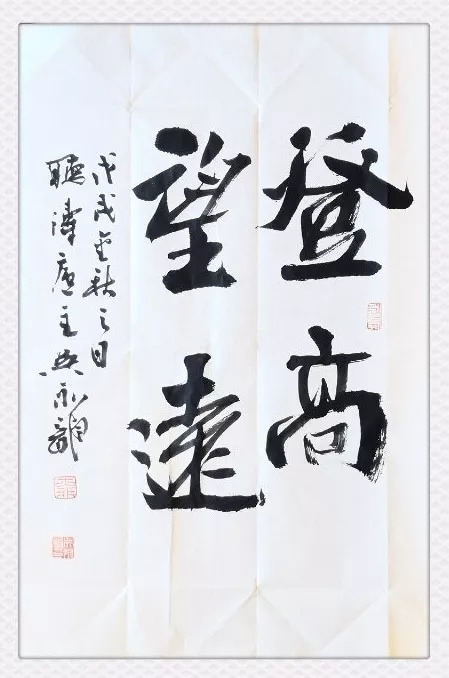 登高
望遠
戊戌金秋之日
聽濤主永